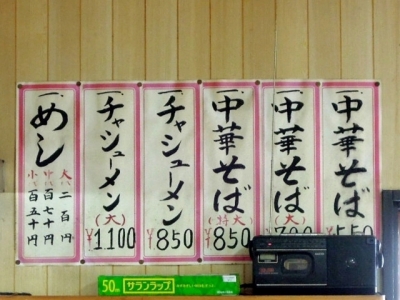 一、中華そば
¥550
一、中華そば
(大)
一、中華そば
(特大)
¥850
一、チャシューメン
¥850
一、チャシューメン
(大)
¥1100
一、めし
大、二百円
中、百七十円
小、百五十円
50m
サランラップ